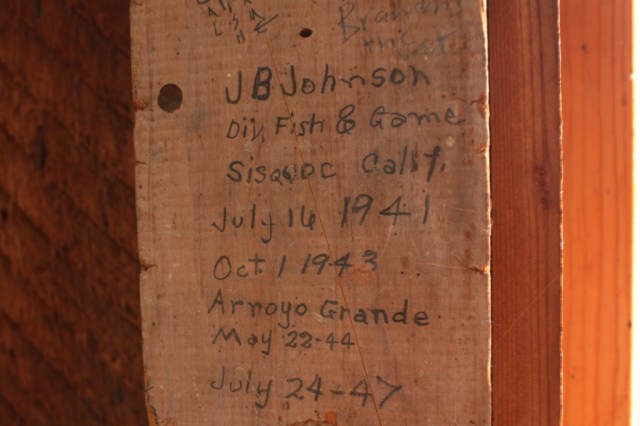 J B Johnson
Div, Fish & Game
Sisquoc Calif.
July 16 1941
Oct 1 1943
Arroyo Grande
May 22-44
July 24-47